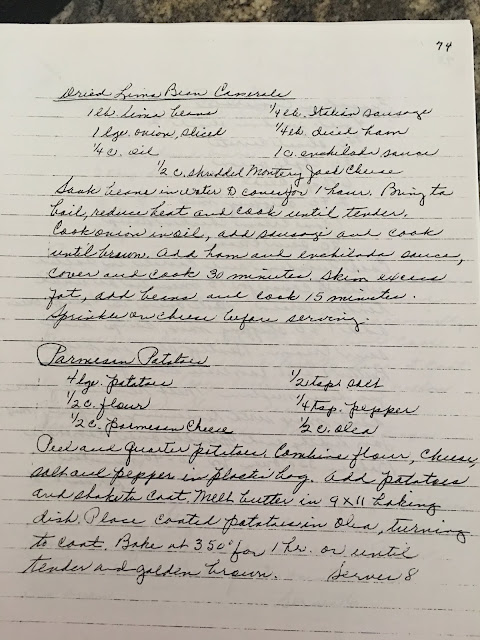 74
Dried Lima Bean Casserole
1 lb. lima beans 1/4 lb. Italian sausage
1 lge. onion, sliced 1/4 lb. diced ham
1/4 c. oil 1 c. enchilada sauce
1/2 c. shredded Montery Jack Cheese
Soak beans in water to cover for 1 hour. Bring to
boil, reduce heat and cook until tender.
Cook onion in oil, add sausage and cook
until brown. Add ham and enchilada sauce,
cover and cook 30 minutes. Skim excess
fat, add beans and cook 15 minutes.
Sprinkle on cheese before serving.
Parmesan Potatoes
4 lge. potatoes 1/2 tsp. salt
1/2 c. flour 1/4 tsp. pepper
1/2 c. Parmesan Cheese 1/2 c. oleo
Peel and quarter potatoes. Combine flour, cheese,
salt and pepper in plastic bag. Add potatoes
and shake to coat. Melt butter in 9 x 11 baking
dish. Place coated potatoes in oleo, turning
to coat. Bake at 350° for 1 hr. or until
tender and golden brown. Serves 8